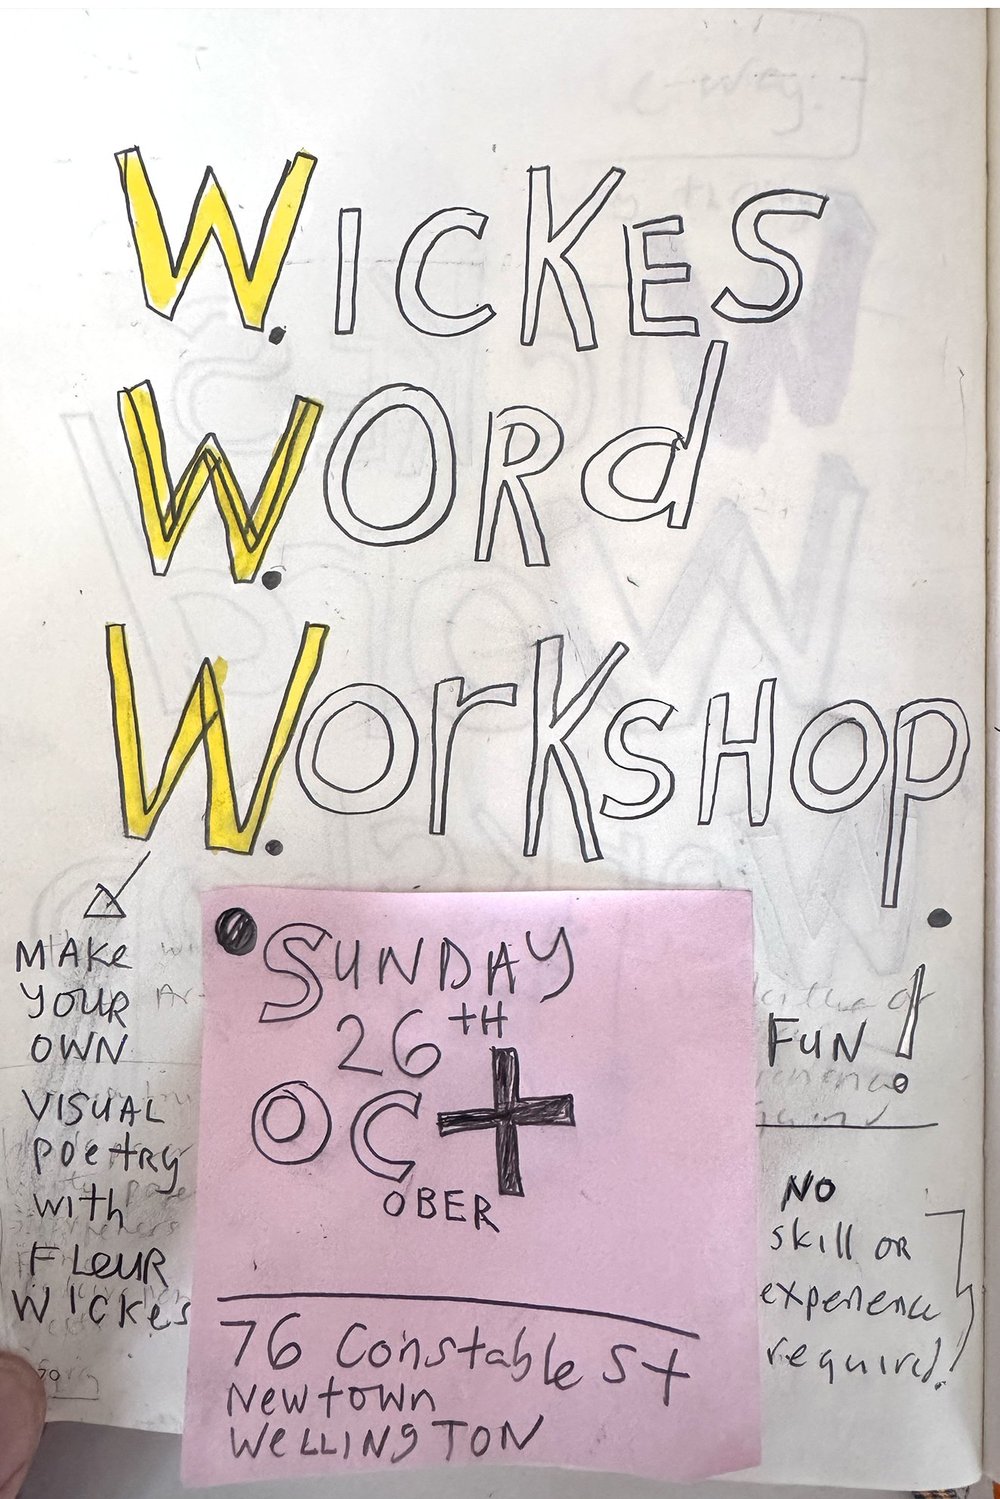 W.ICKES
W.ORd
W.OrKSHOP.
MAKe
YOUR
OWN
VISUAL
poetry
with
FLeUR
WICKes
SUNDAY
26TH
OCT
OBER
76 Constable St
Newtown
WeLLINgTON
FUN!
NO
skill OR
experience
required!